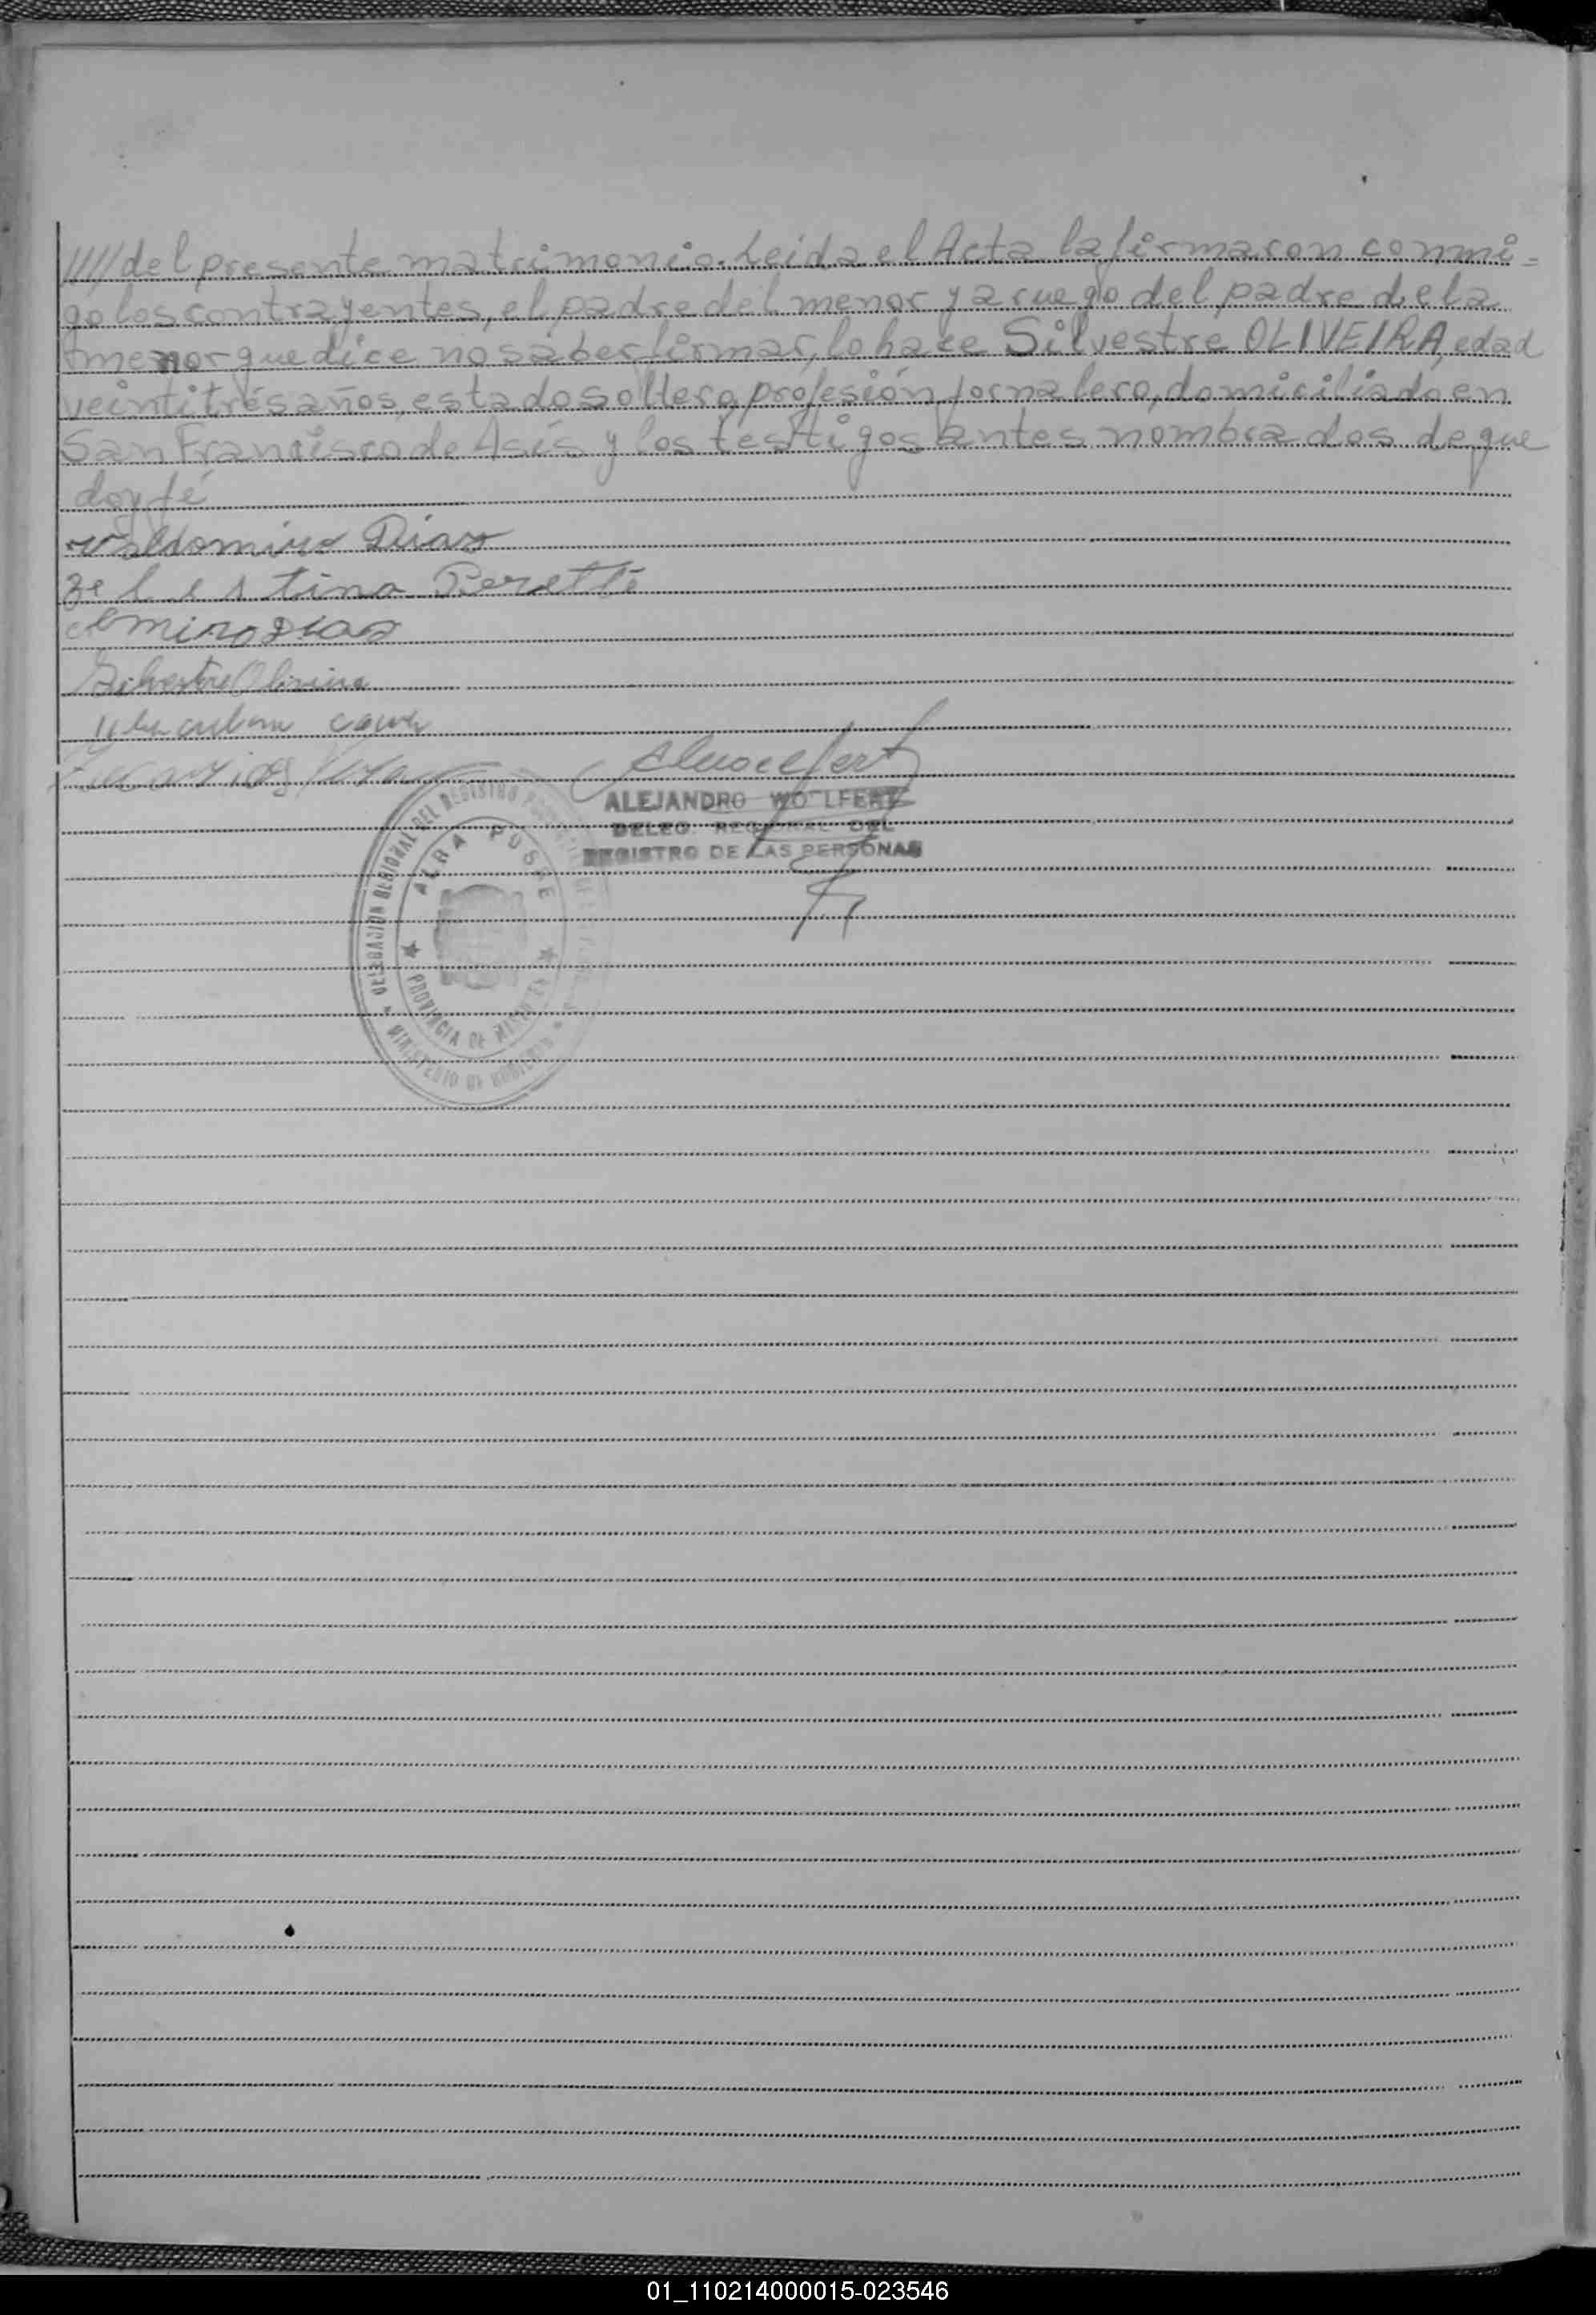 //// del presente matrimonio. Leida el Acta la firmaron conmi=
go los contrayentes, el padre del menor y a ruego del padre de la
menor que dice no saber firmar, lo hace Silvestre OLIVEIRA, edad
veintitrés años, estado soltero, profesión jornalero, domiciliado en
San Francisco de Asís y los testigos antes nombrados de que
doy fé
Valdomiro Dias
Zelestina Peretti
Silvestre Oliveira
ALEJANDRO WOLFERT
DELEG. REGIONAL DEL
REGISTRO DE LAS PERSONAS
DELEGACION REGIONAL DEL REGISTRO
ALBA POSSE
PROVINCIA DE MISIONES
MINISTERIO DE GOBIERNO
01_110214000015-023546